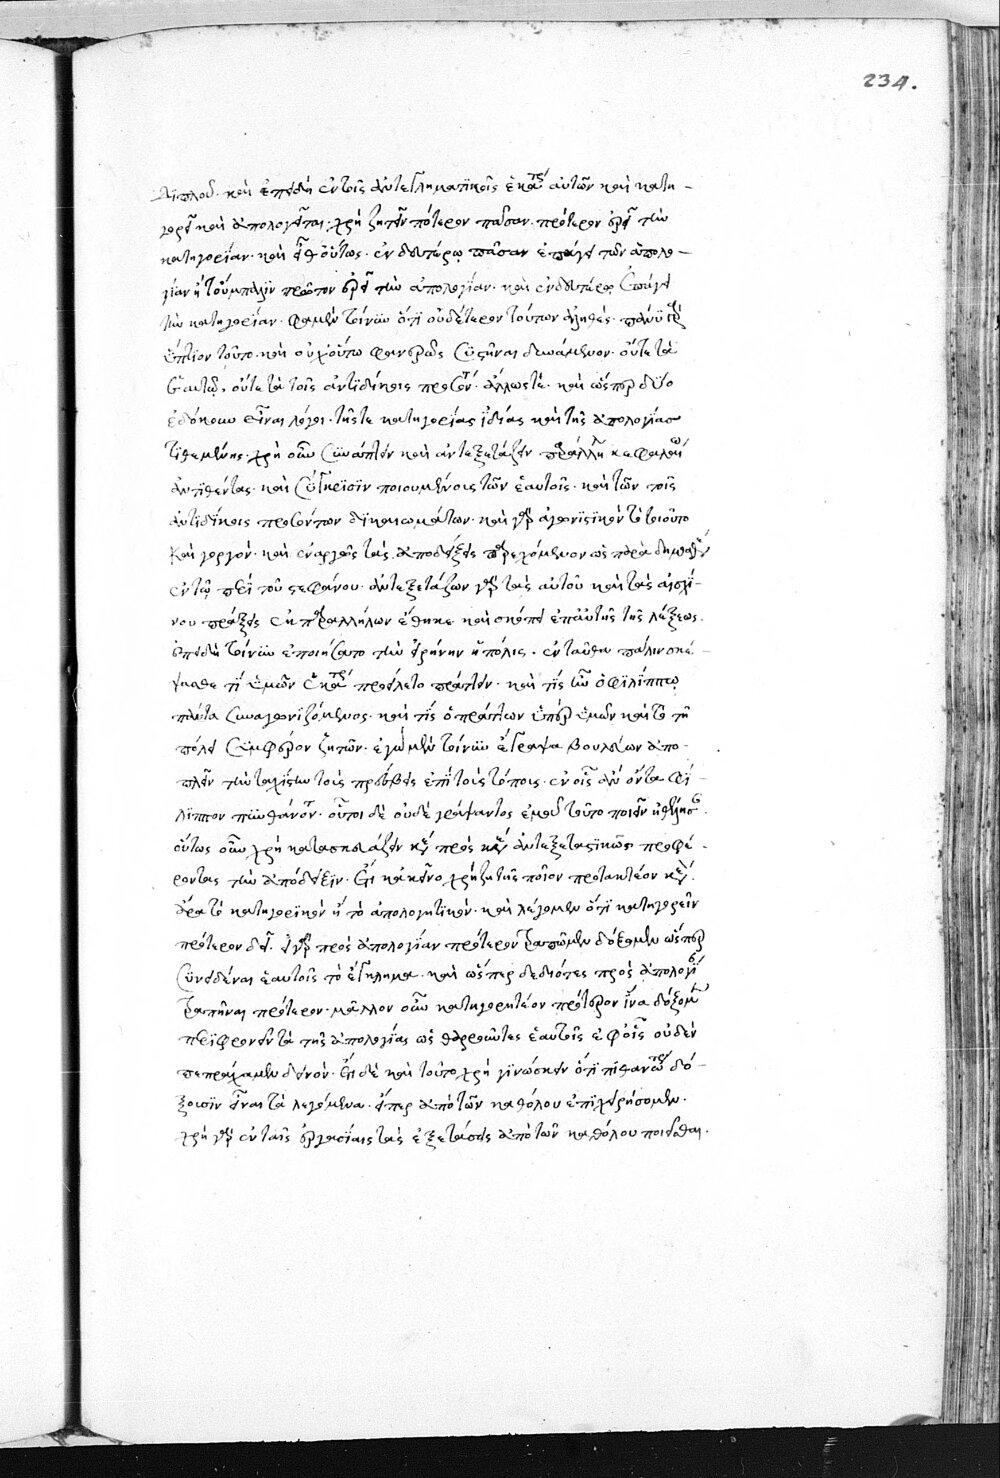 234.
διπλοῦ. καὶ ἐπειδὴ ἐν τοῖς ἀντεγκληματικοῖς ἑκάτερος αὐτῶν καὶ κατη-
γορεῖ καὶ ἀπολογεῖται. χρὴ ζητεῖν πότερον πᾶσαν πρότερον ἐρεῖ τὴν
κατηγορίαν. καὶ εἶθ' οὕτως ἐν δευτέρῳ πᾶσαν ἐπάγει τὴν ἀπολο-
γίαν ἢ τοὔμπαλιν πρῶτον ἐρεῖ τὴν ἀπολογίαν. καὶ ἐν δευτέρῳ ἐπάγει
τὴν κατηγορίαν. φαμὲν τοίνυν ὅτι οὐδέτερον τούτων ἀληθές. πάνυ γὰρ
ὕπτιον τοῦτο. καὶ οὐχ οὕτω φανερῶς συστῆναι δυνάμενον. οὔτε τὰ
ἑαυτῷ, οὔτε τὰ τοῖς ἀντιδίκοις προσόν. ἄλλως τε. καὶ ὥσπερ δύο
ἐδόκουν εἶναι λόγοι. τῆς τε κατηγορίας ἰδίας καὶ τῆς ἀπολογίας
τιθεμένης. χρὴ οὖν συνάπτειν καὶ ἀντεξετάζειν παράλληλα κεφαλαίων
ἀντιθέντας. καὶ σύγκρισιν ποιουμένοις τῶν ἑαυτοῖς. καὶ τῶν τοῖς
ἀντιδίκοις προσόντων δικαιωμάτων. καὶ γὰρ ἀγωνιστικὸν τὸ τοιοῦτο
καὶ γοργὸν. καὶ ἐναργεῖς τὰς ἀποδείξεις παρεχόμενον ὡς παρὰ δημοσθένει
ἐν τῷ περὶ τοῦ στεφάνου. ἀντεξετάζων γὰρ τὰς αὐτοῦ καὶ τὰς αἰσχί-
νου πράξεις ἐκ παραλλήλων ἔθηκε καὶ σκόπει ἐπ' αὐτῆς τῆς λέξεως.
ἐπειδὴ τοίνυν ἐποιήσατο τὴν εἰρήνην ἡ πόλις. ἐνταῦθα πάλιν σκέ-
ψασθε τί ὑμῶν ἑκάτερος προείλετο πράττειν. καὶ τίς ἦν ὁ φιλίππῳ
πάντα συναγωνιζόμενος. καὶ τίς ὁ πράττων ὑπὲρ ὑμῶν καὶ τὸ τῇ
πόλει συμφέρον ζητῶν. ἐγὼ μὲν τοίνυν ἔγραψα βουλεύων ἀπο-
πλεῖν τὴν ταχίστην τοὺς πρέσβεις ἐπὶ τοὺς τόπους. ἐν οἷς ἂν ὄντα φί-
λιππον πυνθάνονται. οὗτοι δὲ οὐδὲ γράψαντος ἐμοῦ τοῦτο ποιεῖν ἠθέλησαν.
οὕτως οὖν χρὴ κατασκευάζειν κεφάλαιον πρὸς κεφάλαιον ἀντεξεταστικῶς προφέ-
ροντας τὴν ἀπόδειξιν. ἔτι κἀκεῖνο χρὴ ζητῆσαι ποῖον προτακτέον κεφάλαιον.
ἆρα τὸ κατηγορικὸν ἢ τὸ ἀπολογητικόν. καὶ λέγομεν ὅτι κατηγορεῖν
πρότερον δεῖ. εἰ γὰρ πρὸς ἀπολογίαν πρότερον τραπῶμεν δόξομεν ὥσπερ
συνειδέναι ἑαυτοῖς τὸ ἔγκλημα. καὶ ὥσπερ δεδιότες πρὸς ἀπολογίας
τραπῆναι πρότερον. μᾶλλον οὖν κατηγορητέον πρότερον ἵνα δόξομεν
περιφρονεῖν τὰ τῆς ἀπολογίας ὡς θαρροῦντες ἑαυτοῖς ἐφ' οἷς οὐδὲν
πεπράχαμεν δεινόν. ἔτι δὲ καὶ τοῦτο χρὴ γινώσκειν ὅτι πιθανώτερα δό-
ξουσιν εἶναι τὰ λεγόμενα. εἴπερ ἀπὸ τῶν καθόλου ἐπιχειρήσομεν.
χρὴ γὰρ ἐν ταῖς ἐργασίαις τὰς ἐξετάσεις ἀπὸ τῶν καθόλου ποιεῖσθαι.